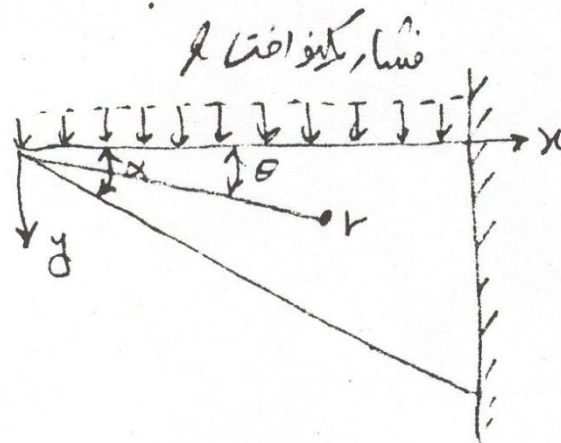 فشار یکنواخت q
x
α θ
r
y